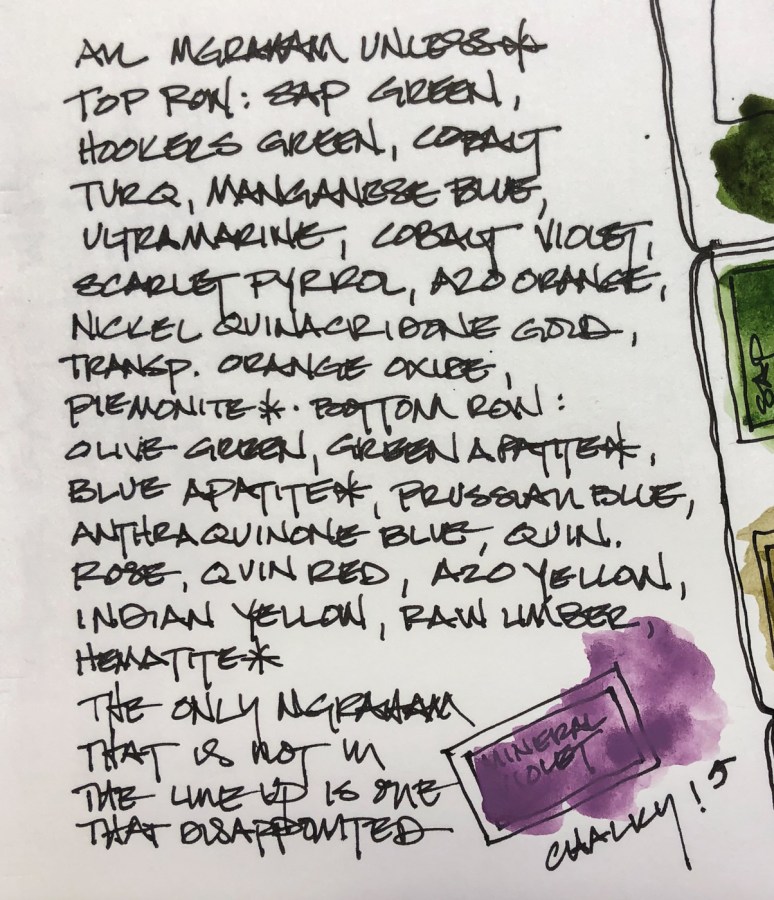 ALL MGRAHAM UNLESS*
TOP ROW: SAP GREEN,
HOOKERS GREEN, COBALT
TURQ, MANGANESE BLUE,
ULTRAMARINE, COBALT VIOLET,
SCARLET PYRROL, AZO ORANGE,
NICKEL QUINACRIDONE GOLD,
TRANSP. ORANGE OXIDE,
PIEMONITE*. BOTTOM ROW:
OLIVE GREEN, GREEN APATITE*,
BLUE APATITE*, PRUSSIAN BLUE,
ANTHRAQUINONE BLUE, QUIN.
ROSE, QUIN RED, AZO YELLOW,
INDIAN YELLOW, RAW UMBER,
HEMATITE*
THE ONLY MGRAHAM
THAT IS NOT IN
THE LINE UP IS ONE
THAT DISAPPOINTED
MINERAL
VIOLET
CHALKY!
SAP